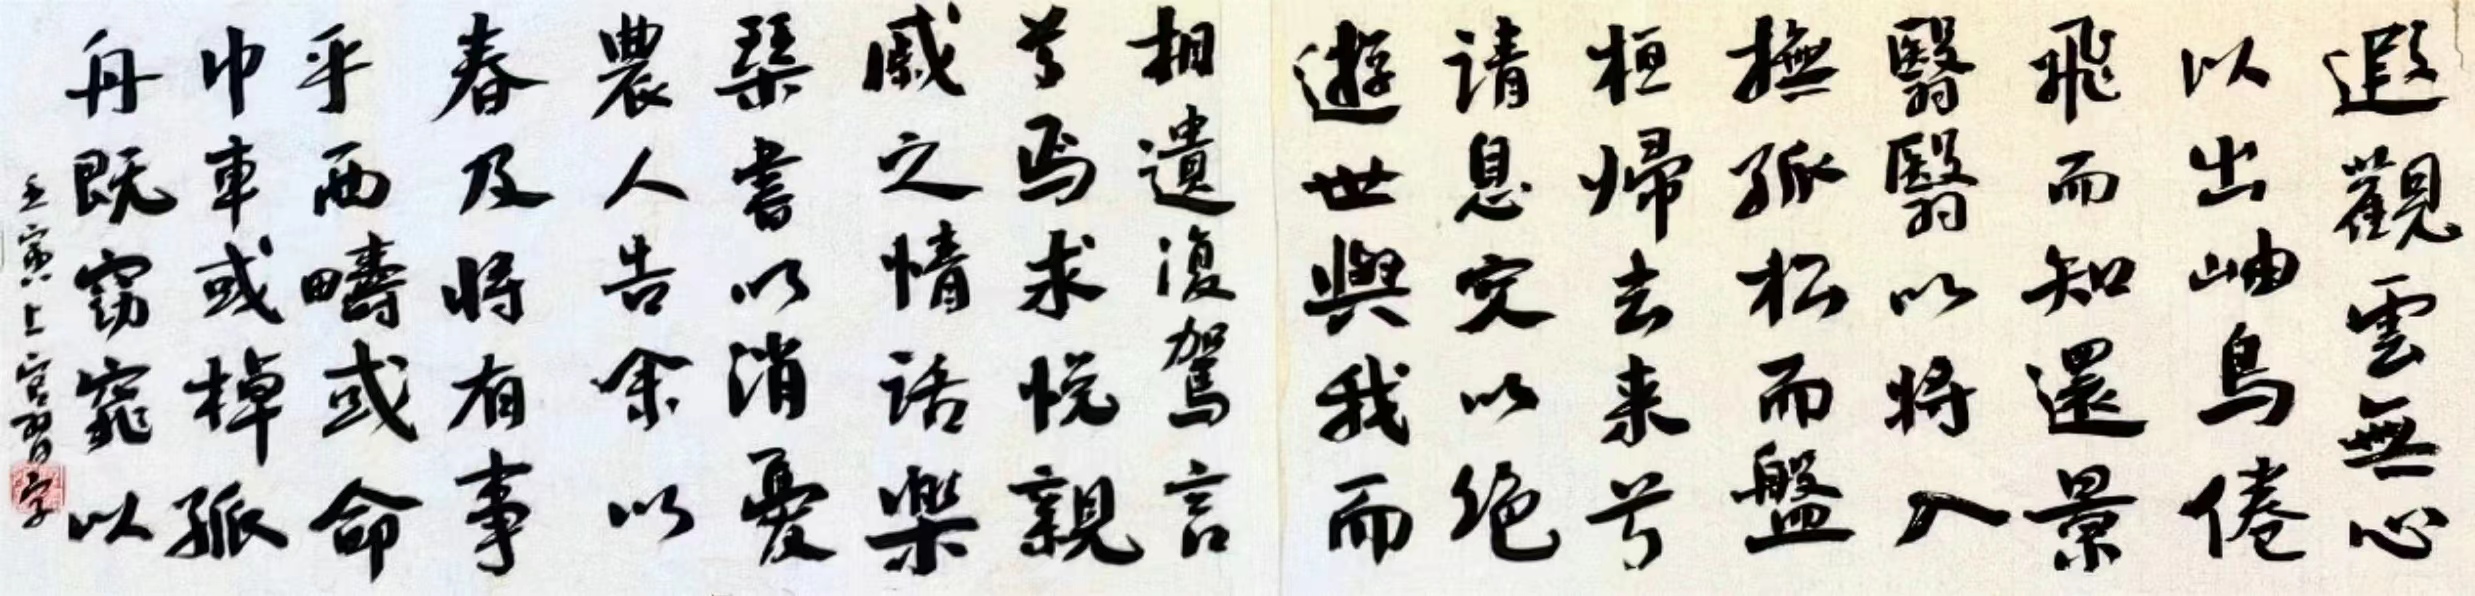 遐觀雲無心
以出岫鳥倦
飛而知還景
翳翳以将入
撫孤松而盤
桓歸去来兮
請息交以絶
遊世與我而
相遺復駕言
兮焉求悦親
戚之情話樂
琴書以消憂
農人告余以
春及将有事
乎西疇或命
巾車或棹孤
舟既窈窕以
壬寅上官習字